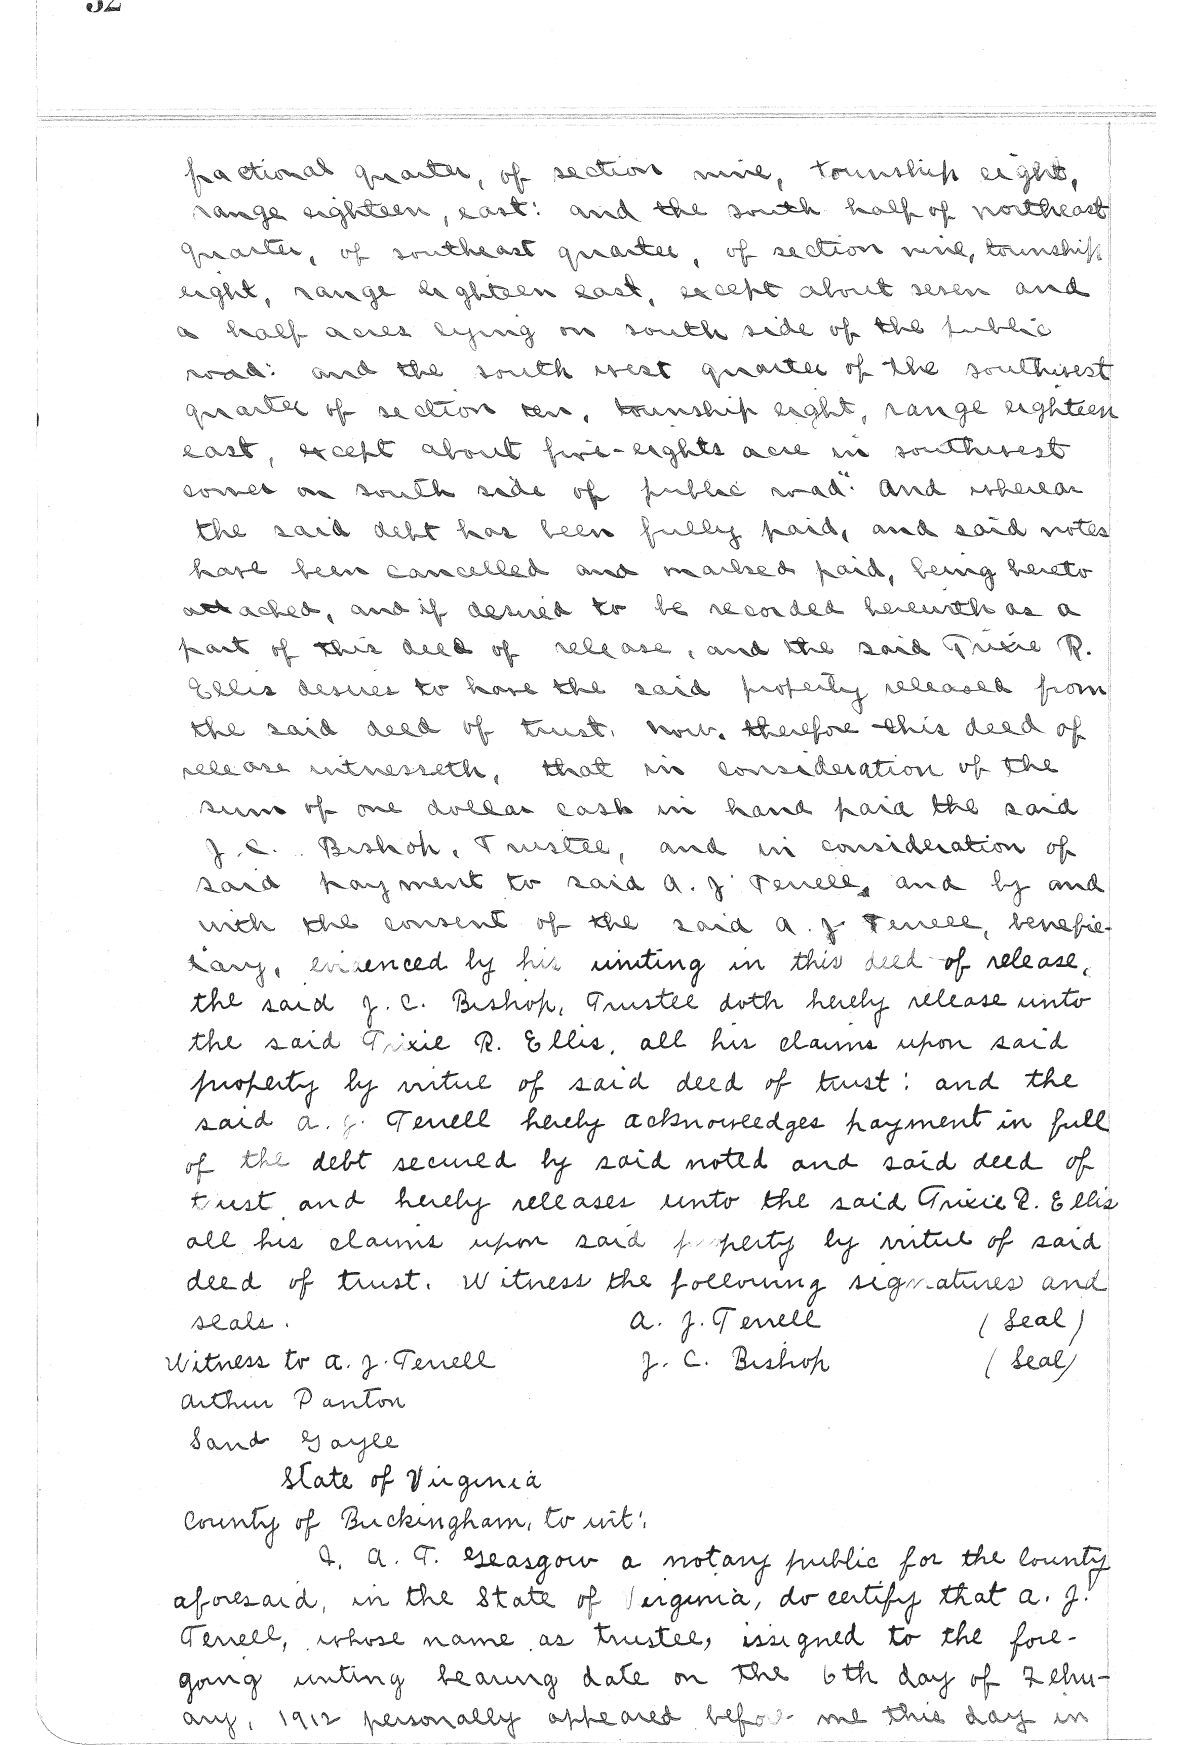 32
fractional quarter, of section nine, township eight,
range eighteen, east: and the south half of northeast
quarter, of southeast quarter, of section nine, township
eight, range eighteen east, except about seven and
a half acres lying on south side of the public
road: and the south west quarter of the southwest
quarter of section ten, township eight, range eighteen
east, except about five-eights acre in southwest
corner on south side of public road": And whereas
the said debt has been fully paid, and said notes
have been cancelled and marked paid, being hereto
attached, and if desired to be recorded herewith as a
part of this deed of release, and the said Trixie R.
Ellis desires to have the said property released from
the said deed of trust. Now, therefore this deed of
release witnesseth, that in consideration of the
sum of one dollar cash in hand paid the said
J. C. Bishop, Trustee, and in consideration of
said payment to said A. J. Terrell, and by and
with the consent of the said A. J. Terrell, benefic-
iary, evidenced by his uniting in this deed of release,
the said J. C. Bishop, Trustee doth hereby release unto
the said Trixie R. Ellis, all his claims upon said
property by virtue of said deed of trust: and the
said A. J. Terrell hereby acknowledges payment in full
of the debt secured by said noted and said deed of
trust and hereby releases unto the said Trixie R. Ellis
all his claims upon said property by virtue of said
deed of trust. Witness the following signatures and
seals. A. J. Terrell (Seal)
Witness to A. J. Terrell J. C. Bishop (Seal)
Arthur Panton
Sand Gayle
State of Virginia
County of Buckingham, to wit:
I, A. T. Gleasgow a notary public for the County
aforesaid, in the State of Virginia, do certify that A. J.
Terrell, whose name as trustee, is signed to the fore-
going writing bearing date on the 6th day of Febru-
ary, 1912 personally appeared before me this day in